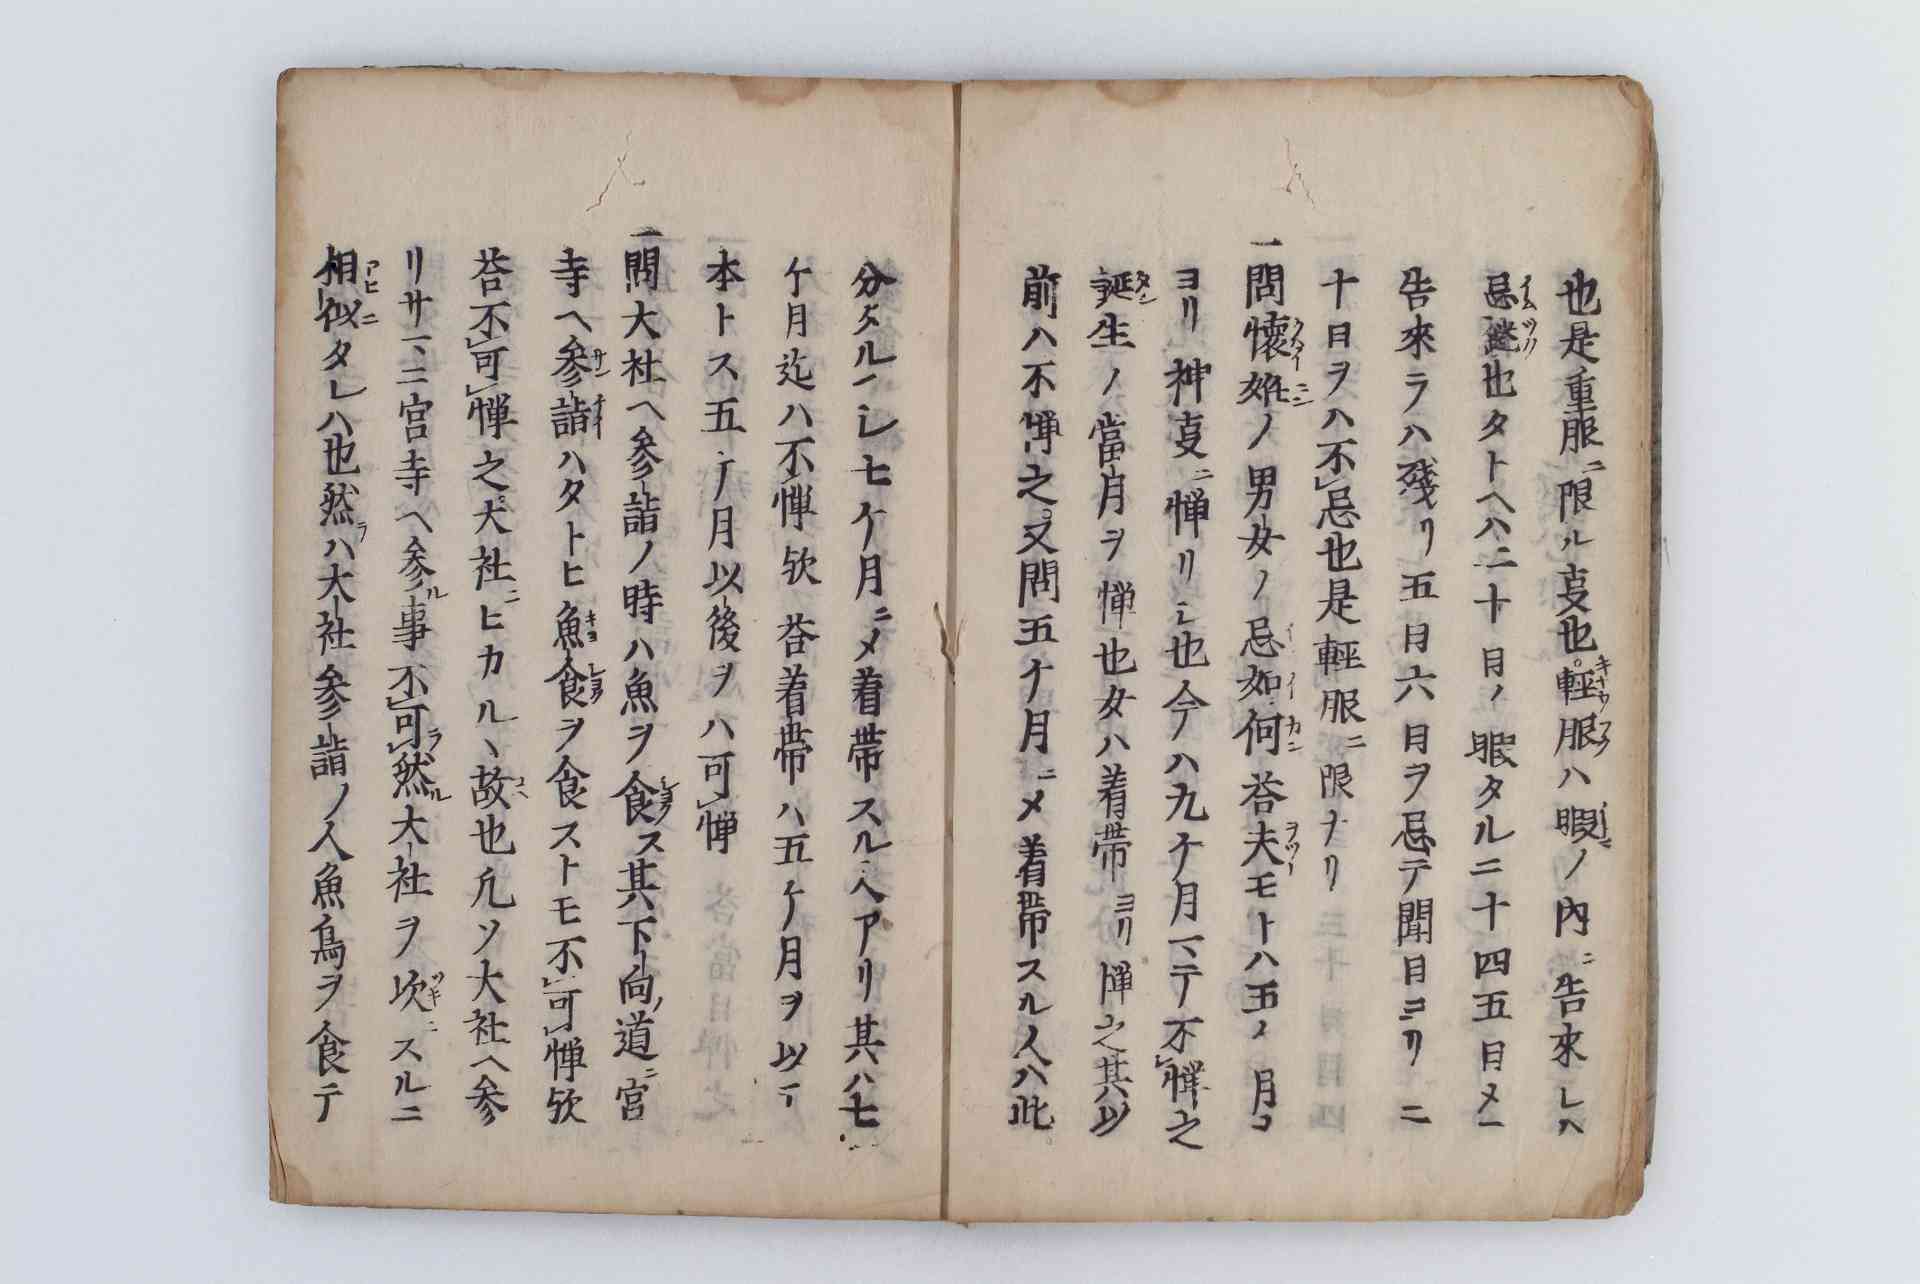 也是重服ニ限ル𫝕也輕服ハ暇ノ内ニ告來レハ
忌𨗈也タトヘハ二十日ノ暇タル二十四五日メニ
告來ラハ殘リ五日六日ヲ忌テ聞日ヨリ二
十日ヲハ不忌也是輕服ニ限ナリ
一問懷妊ノ男女ノ忌如何荅夫モトハ五ノ月コ
ヨリ神𫝕ニ憚リシ也今ハ九ケ月マテ不憚之
誕生ノ當月ヲ憚也女ハ着帶ヨリ憚之其以
前ハ不憚之又問五ケ月ニメ着帶スル人ハ此
分タルヘシ七ケ月ニメ着帶スル人アリ其ハ七
ケ月迄ハ不憚欤荅着帶ハ五ケ月ヲ以テ
本トス五ケ月以後ヲハ可憚
一問大社ヘ參詣ノ時ハ魚ヲ食ス其下向ノ道ニ宮
寺ヘ參詣ハタトヒ魚食ヲ食ストモ不可憚欤
荅不可憚之大社ニヒカルヽ故也凢ソ大社ヘ參
リサマニ宮寺ヘ參ル事不可然ル大社ヲ次ニスルニ
相似タレハ也然ラハ大社參詣ノ人魚鳥ヲ食テ